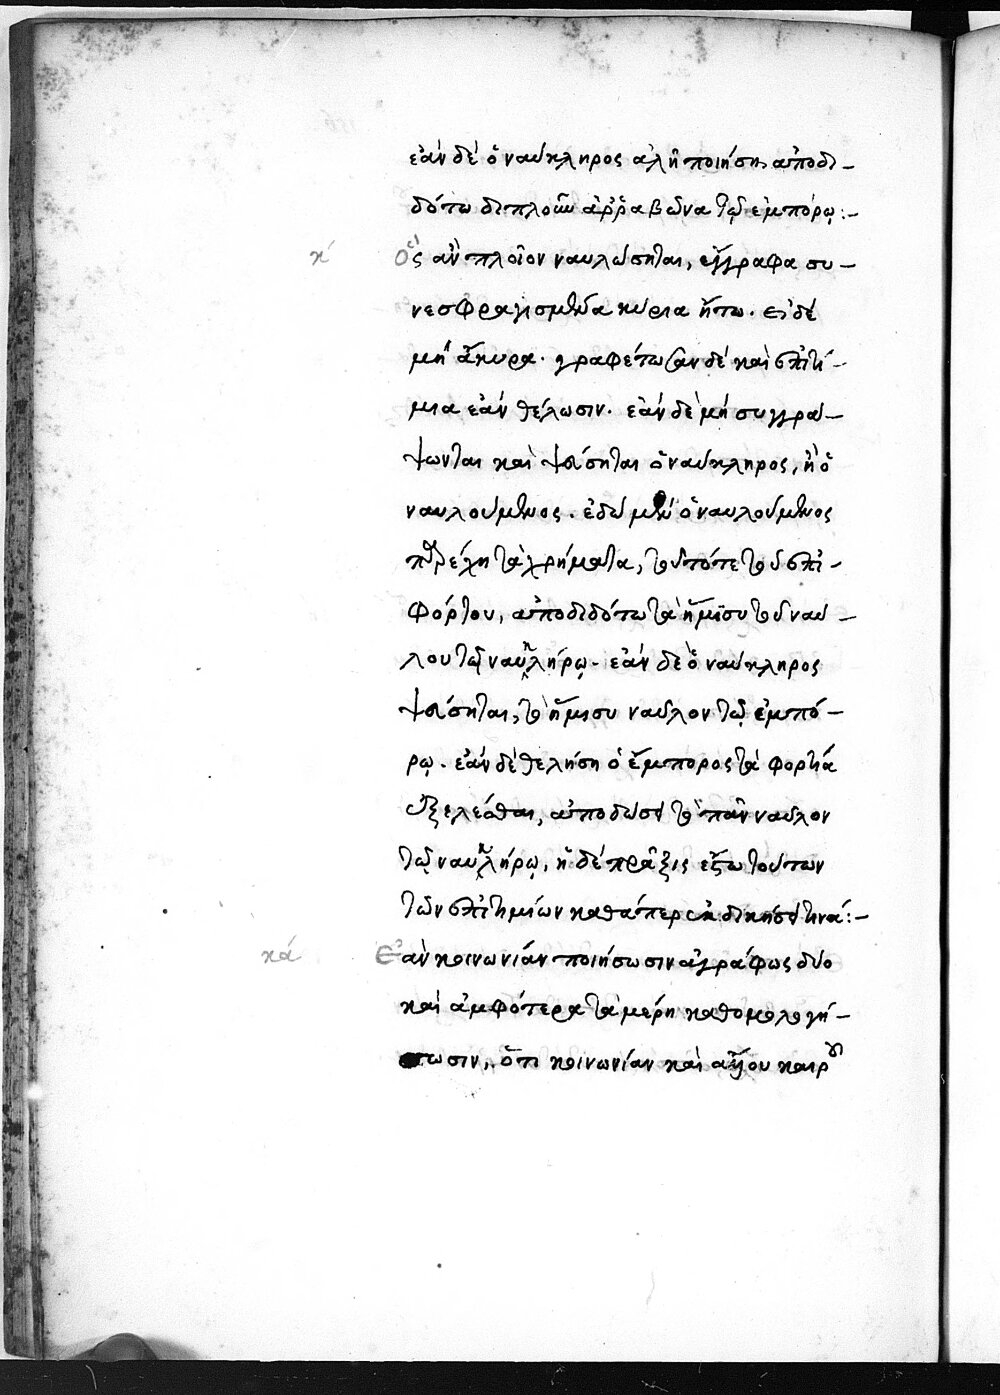 ἐὰν δὲ ὁ ναύκληρος ἀλῆ ποιήση, ἀποδι–
δότω διπλοῦν ἀῤῥαβῶνα τῷ ἐμπόρῳ:–
κ´ Ὃς ἂν πλοῖον ναυλώσηται, ἔγγραφα συ–
νεσφραγισμένα κύρια ἤτω. εἰ δὲ
μὴ ἄκυρα. γραφέτωσαν δὲ καὶ ἐπιτί–
μια ἐὰν θέλωσιν. ἐὰν δὲ μὴ συγγρά–
ψωνται καὶ ψεύσηται ὁ ναύκληρος, ἢ ὁ
ναυλούμενος. ἐδῶ μὲν ὁ ναυλούμενος
παρέχη τὰ χρήματα, τοῦ τότε τοῦ ἐπι–
φόρτου, ἀποδιδότω τὰ ἥμισυ τοῦ ναύ–
λου τῷ ναυκλήρῳ. ἐὰν δὲ ὁ ναύκληρος
ψεύσηται, τὸ ἥμισυ ναῦλον τῷ ἐμπό–
ρῳ. ἐὰν δὲ θελήση ὁ ἔμπορος τὰ φορτία
ἐξελέσθαι, ἀποδώσει τὸ πᾶν ναῦλον
τῷ ναυκλήρῳ, ἡ δὲ πρᾶξις ἔξω τούτων
τῶν ἐπιτιμίων καθάπερ ἐκδικήσει τινά:–
κά Ἐὰν κοινωνίαν ποιήσωσιν ἀγράφως δύο
καὶ ἀμφότερα τὰ μέρη καθομολογή–
σωσιν, ὅτι κοινωνίαν καὶ ἄλλου καιροῦ